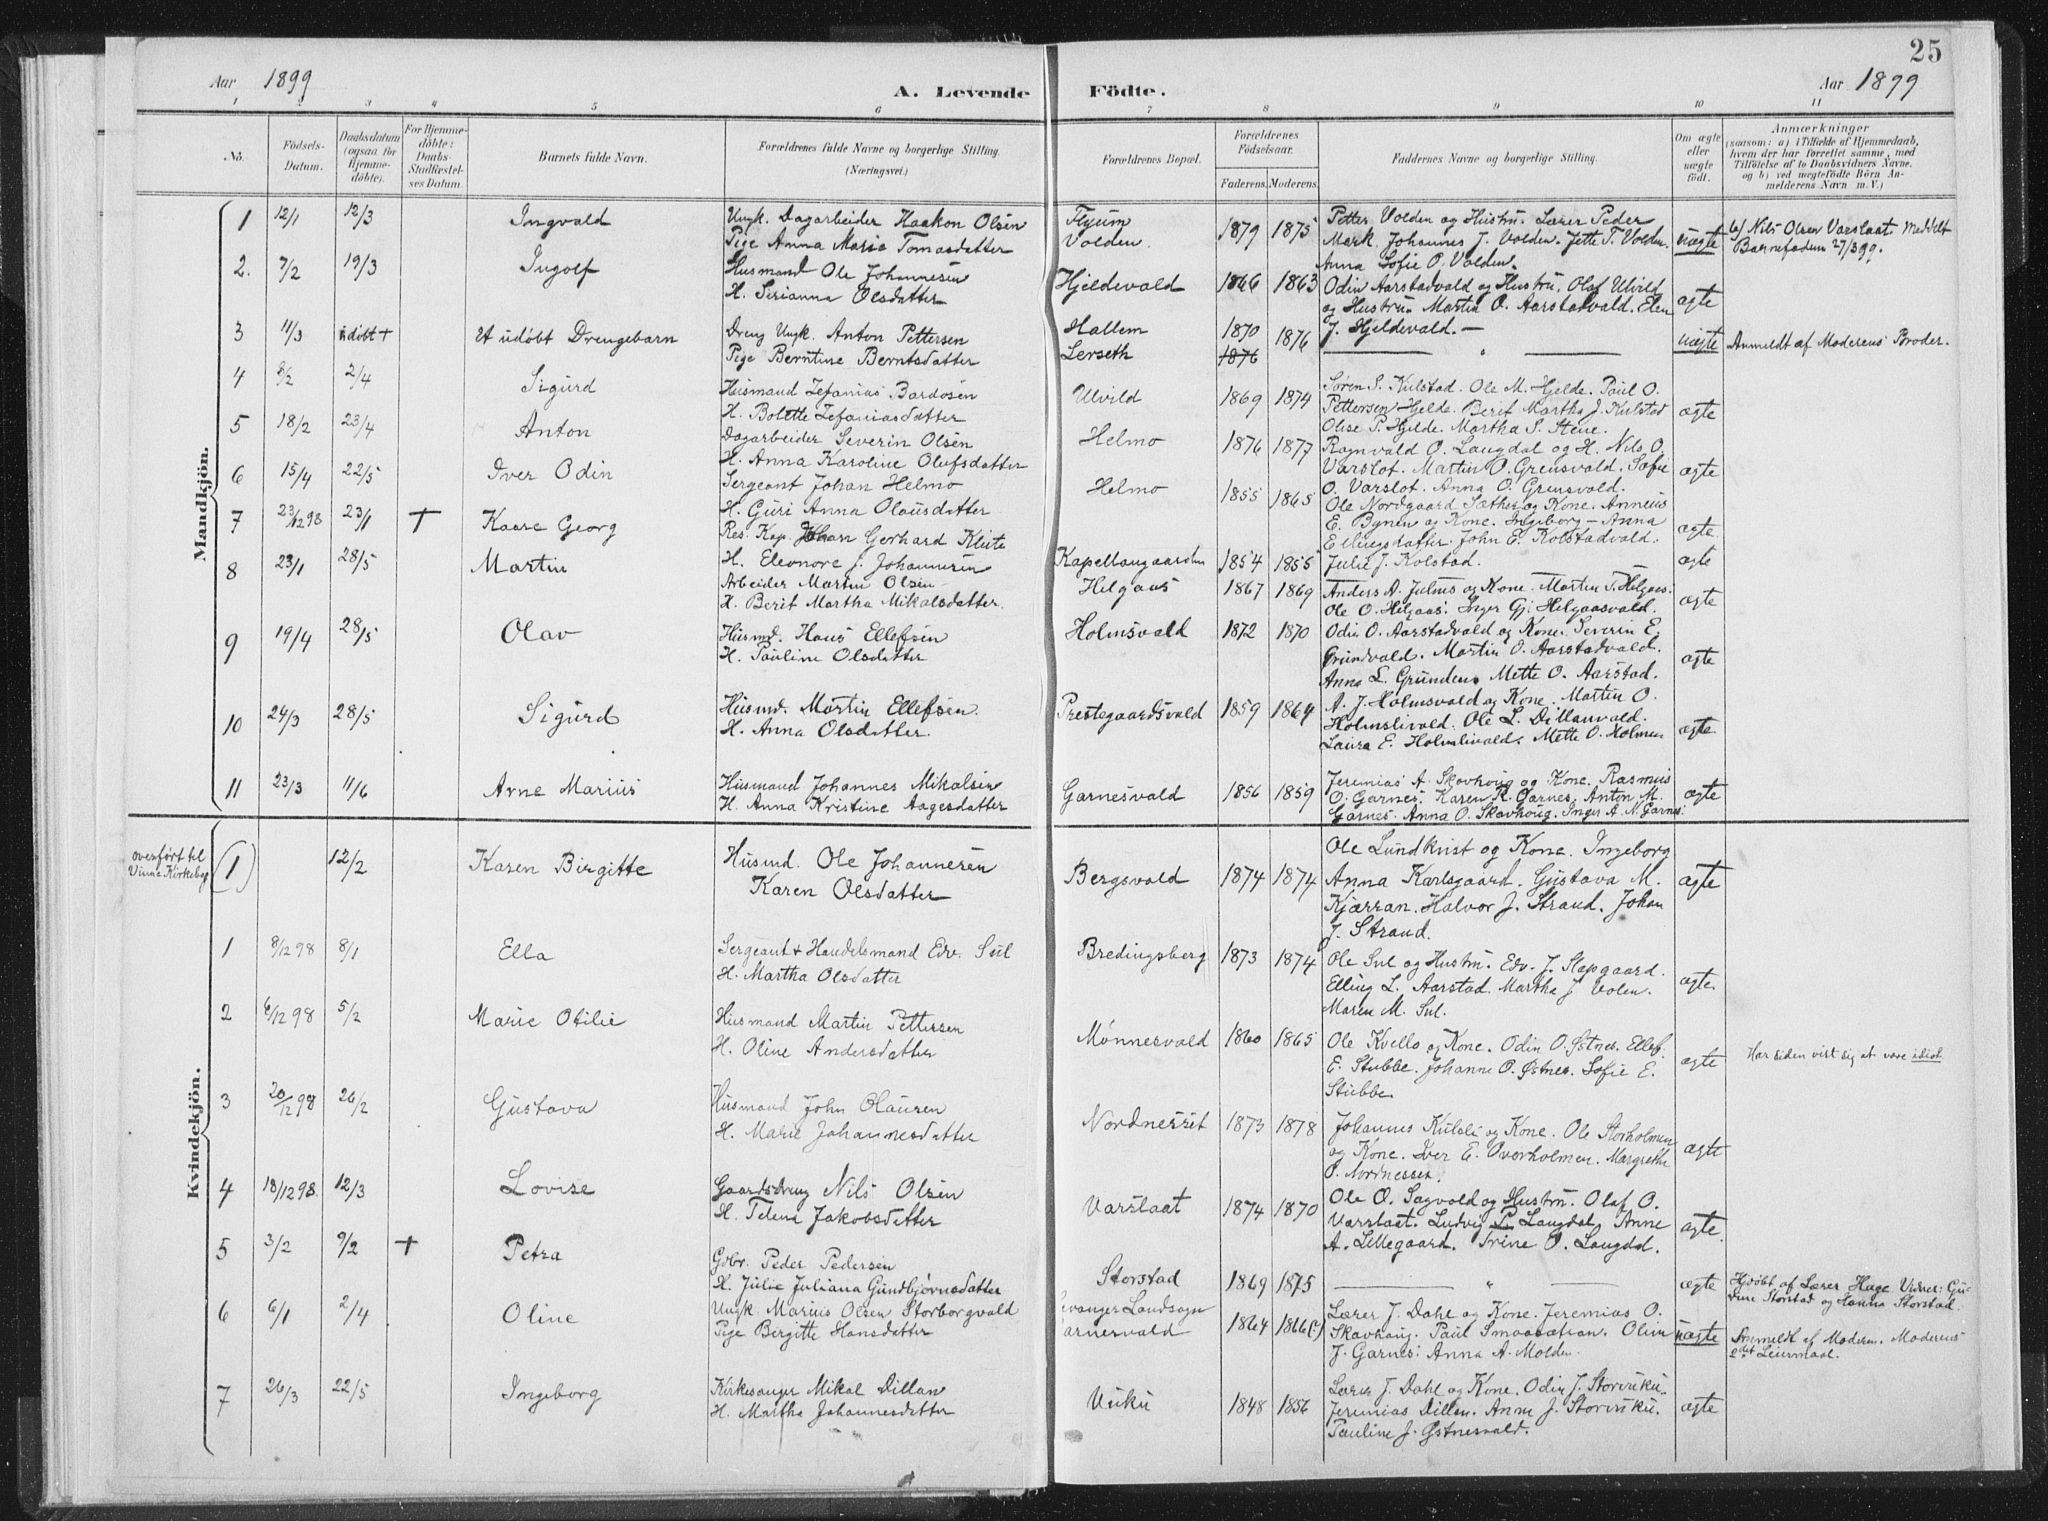 25
Aar 1899 A. Levende Födte. Aar 1899
1 2 3 4 5 6 7 8 9 10 11
No. Födsels-Datum. Daabsdatum (ogsaa for Hjemme-döbte). For Hjemme-döbte: Daabs-Stadfæstel-ses Datum. Barnets fulde Navn. Forældrenes fulde Navne og borgerlige Stilling. (Næringsvei.) Forældrenes Bopæl. Forældrenes Födselsaar. Faderens. Moderens. Faddernes Navne og borgerlige Stilling. Om ægte eller uægte födt. Anmærkninger (saasom: a) i Tilfælde af Hjemmedaab, hvem der har forrettet samme, med Tilföielse af to Daabsvidners Navne, og b) ved uægtefödte Börn An-melderens Navn m. V.)
Mandkjön.
1 12/1 12/3 Ingvald Ungk. Dagarbeider Haakon Olsen
Pige Anna Marie Tomasdatter
Volden. 1879 1875 Petter Volden og Hustru. Lærer Peder
Mark. Johannes J. Volden. Jette T. Volden.
Anna Sofie O. Volden.
uægte b) Nils Olsen Varslaat. Meddelt
Barnefaderen 27/3 99.
2. 7/2 19/3 Ingolf Husmand Ole Johannesen
H. Serianna Olsdatter
Hjeldevald 1866 1863 Odin Aarstadvald og Hustru. Olaf Ulvild
og Hustru. Martin O. Aarstadvald. Elen
J. Hjeldevald. —
ægte
3 11/3 udøbt + Et udöbt Drengebarn Dreng Ungk. Anton Pettersen
Pige Berntine Berntsdatter
Hallem
Lerseth
1870 1876
1876
uægte Anmeldt af Moderens Broder.
4 8/2 2/4 Sigurd Husmand Zefanias Bardosen
H. Bolette Zefaniasdatter
Ulvild 1869 1874 Søren S. Kulstad. Ole M. Hjelde. Paul O.
Pettersen Hjelde. Berit Martha J. Kulstad
Olise P. Hjelde. Martha S. Stene.
ægte
5 18/2 23/4 Anton Dagarbeider Severin Olsen
H. Anna Karoline Olufsdatter
Helmo 1876 1877 Ragnvald O. Langdal og H. Nils O.
Varslot. Martin O. Grensvald. Sofie
O. Varslot. Anna O. Grensvald.
ægte
6 15/4 22/5 Iver Odin Sergeant Johan Helmo
H. Guri Anna Olausdatter
Helmo 1855 1865 Ole Nordgaard Sæther og Kone. Annæus
E. Bynen og Kone. Ingeborg – Anna
Ellingsdatter. John E. Kolstadvald.
Julie J. Kolstad.
ægte.
7 23/12 98 23/1 + Kaare Georg Res. Kap. Johan Gerhard Klüte
H. Eleonore J. Johannesen
Kapellangaarden 1854 1855 ægte
8 23/1 28/5 Martin Arbeider Martin Olsen
H. Berit Martha Mikalsdatter.
Helgaas 1867 1869 Anders A. Julnes og Kone. Martin T. Helgaas.
Ole O. Helgaas. Inger Gj. Helgaasvald.
ægte
9 19/4 28/5 Olav Husmd. Hans Ellefsen
H. Pauline Olsdatter
Holmsvald 1872 1870 Odin O. Aarstadvald og Kone. Severin E.
Grundvald. Martin O. Aarstadvald.
Anna L. Grunden. Mette O. Aarstad.
ægte
10 24/3 28/5 Sigurd Husmd. Martin Ellefsen.
H. Anna Olsdatter.
Prestegaardsvald 1859 1864 A. J. Holmsvald og Kone. Martin O.
Holmslivald. Ole L. Dillanvald.
Laura E. Holmslivald. Mette O. Holmen
ægte.
11 23/3 11/6 Arne Marius Husmand Johannes Mikalsen
H. Anna Kristine Aagesdatter
Garnesvald 1856 1859 Jeremias A. Skavhoug og Kone. Rasmus
O. Garnes. Karen K. Garnes. Anton M.
Garnes. Anna O. Skavhoug. Inger A. N. Garnes.
ægte
Kvindekjön.
overført til
Vinne Kirkebog
(1) 12/2 Karen Birgitte Husmd. Ole Johannesen
Karen Olsdatter
Bergsvald 1874 1874 Ole Lundkvist og Kone. Ingeborg
Anna Karlsgaard. Gustava M.
Kjærran. Halvor J. Strand. Johan
J. Strand.
ægte
1 8/12 98 8/1 Ella Sergeant + Handelsmand Edv. Sul
H. Martha Olsdatter
Bredingsberg 1873 1874 Ole Sul og Hustru. Edv. J. Slapgaard.
Elling L. Aarstad. Martha J. Volen.
Maren M. Sul.
ægte.
2 6/12 98 5/2 Marie Otilie Husmand Martin Pettersen
H. Oline Andersdatter
Mønnesvald 1860 1865 Ole Kvello og Kone. Odin O. Østnes. Ellef
E. Stubbe. Johanne O. Østnes. Sofie E.
Stubbe.
ægte Har siden vist sig at være idiot.
3 20/12 98 26/2 Gustava Husmand John Olausen
H. Marie Johannesdatter
Nordnesset 1873 1878 Johannes Kulsli og Kone. Ole Storholmen
og Kone. Iver E. Overholmen. Margrethe
O. Nordnesset.
ægte
4 18/12 98. 12/3 Lovise Gaardsdreng Nils Olsen
H. Telena Jakobsdatter
Varslaat 1874 1870 Ole O. Sagvold og Hustru. Olaf O.
Varslaat. Ludvig P. Langdal. Anne
A. Lillegaard. Trine O. Langdal.
ægte.
5 3/2 9/2 + Petra Gdbr. Peder Pedersen
H. Julie Juliana Gundbjørnsdatter
Storstad 1869 1875 ægte Hjdøbt af Lærer Hage. Vidner: Gu-
rine Storstad og Hanna Storstad.
6 6/1 2/4 Oline Ungk. Marius Olsen Storborgvald
Pige Birgitte Hansdatter
evanger Landsogn
arnesvald
1864 1866(?) Lærer J. Dahl og Kone. Jeremias O.
Skavhaug. Paul Smaasætran. Oline
J. Garnes. Anna A. Molden.
uægte Anmeldt af Moderen. Moderens
2det Leiermaal.
7 26/3 22/5 Ingeborg Kirkesanger Mikal Dillan
H. Martha Johannesdatter
Vuku 1848 1856 Lærer J. Dahl og Kone. Odin J. Storvuku.
Jeremias Dillan. Anne J. Storvuku.
Pauline J. Østnesvald.
ægte